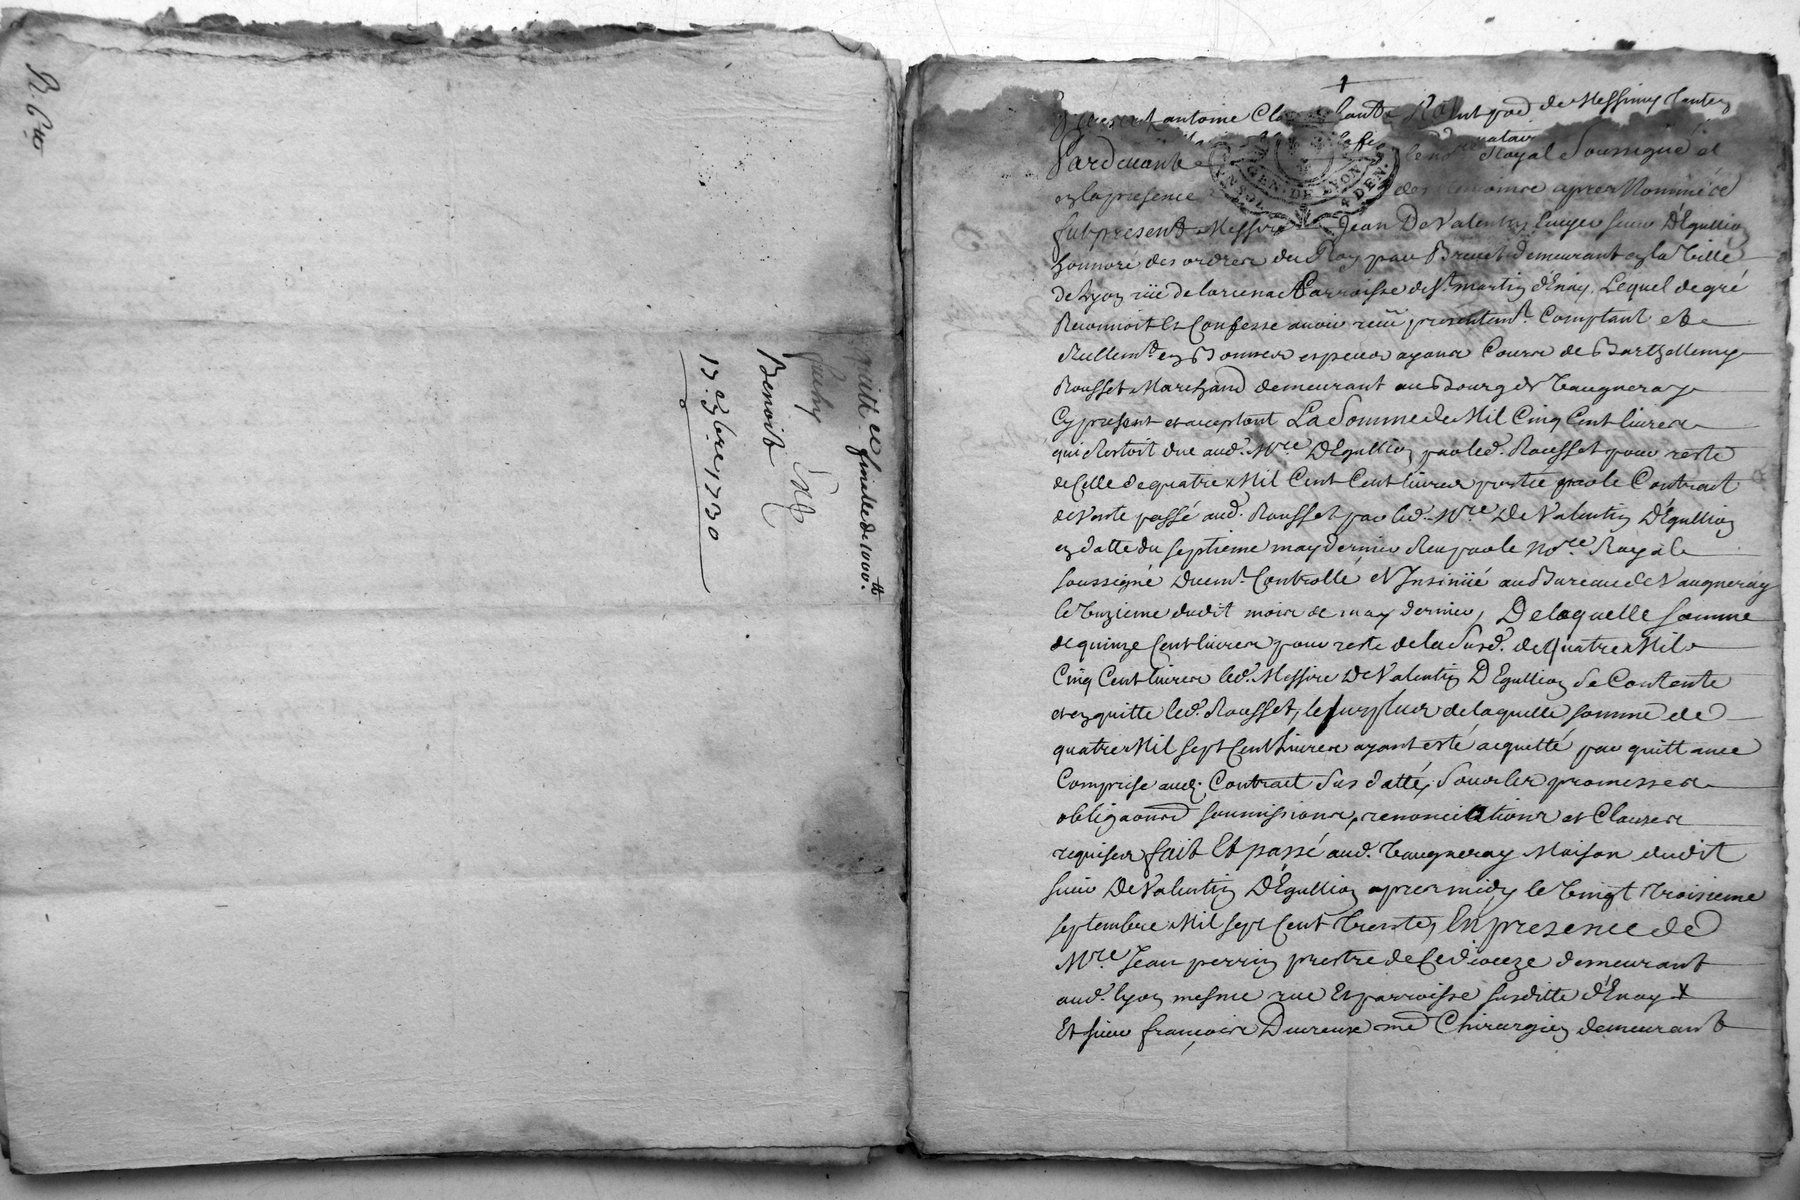 R. Cto
quittce finalle de 1000.tt
Benoit
13 9bre 1730
antoine
Pardevant le nore Royal Soussigné et
notaire
en la presence des temoins apres Nommés
fut present Messire Jean De Valentin Ecuyer sieur D'Egullion
honnoré des ordres du Roy par Brevet demeurant en la Ville
de Lyon rüe de Parroisse de St. martin d'Enay. Lequel de gré
Reconnoit et Confesse avoir receu presentemt. Comptant et
Reellemt. en Bonnes especes ayant Cours de Barthellemy
Rousset Marchand demeurant au Bourg de Vaugneray
Cy present et acceptant La Somme de Mil Cinq Cent livres
qui Restoit due aud. Mre D'Egullion par led. Rousset pour reste
de Celle de quatre Mil Cent livres portée par le Contract
de Vente passé aud. Rousset par led. Mre De Valentin D'Egullion
en datte du septieme may dernier Receu par le Nore Royal
soussigné Duemt. Controllé et Insinüé au Bureau de Vaugneray
le dudit mois de may dernier, De laquelle somme
de quinze Cent livres pour reste de la Susd. de quatre Mil
Cinq Cent livres led. Messire De Valentin D'Egullion Se Contente
et en quitte led. Rousset, le surplus de laquelle somme de
quatre Mil sept Cent livres ayant esté acquitté par quittance
Comprise aud. Contrait Sus datté, Sous les promesses
obligaons soumissions, renonciations et Clauses
requises fait Et passé aud. Vaugneray Maison dudit
sieur De Valentin D'Egullion apres midy le Vingt troisieme
septembre Mil sept Cent Trente, En presence de
Mre Jean perrin prestre de Ce dioceze demeurant
aud. Lyon mesme rue Et parroisse susditte d'Enay X
Et sieur françois Dureux me Chirurgien demeurant
GEN. DE LYON